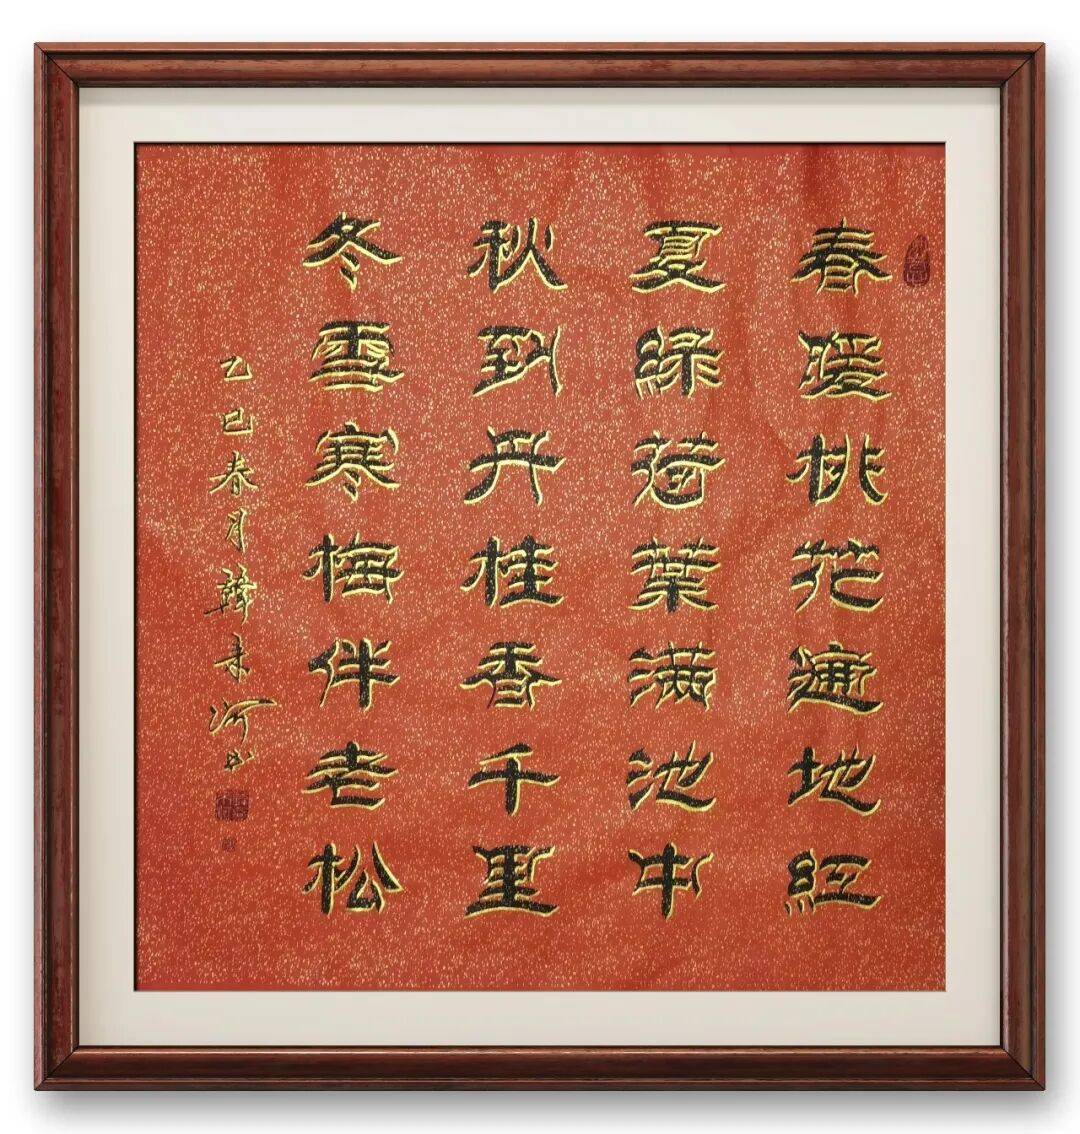 春暖桃花遍地红
夏緑荷葉满池中
秋到丹桂香千里
冬雪寒梅伴老松
乙巳春月韓来河书